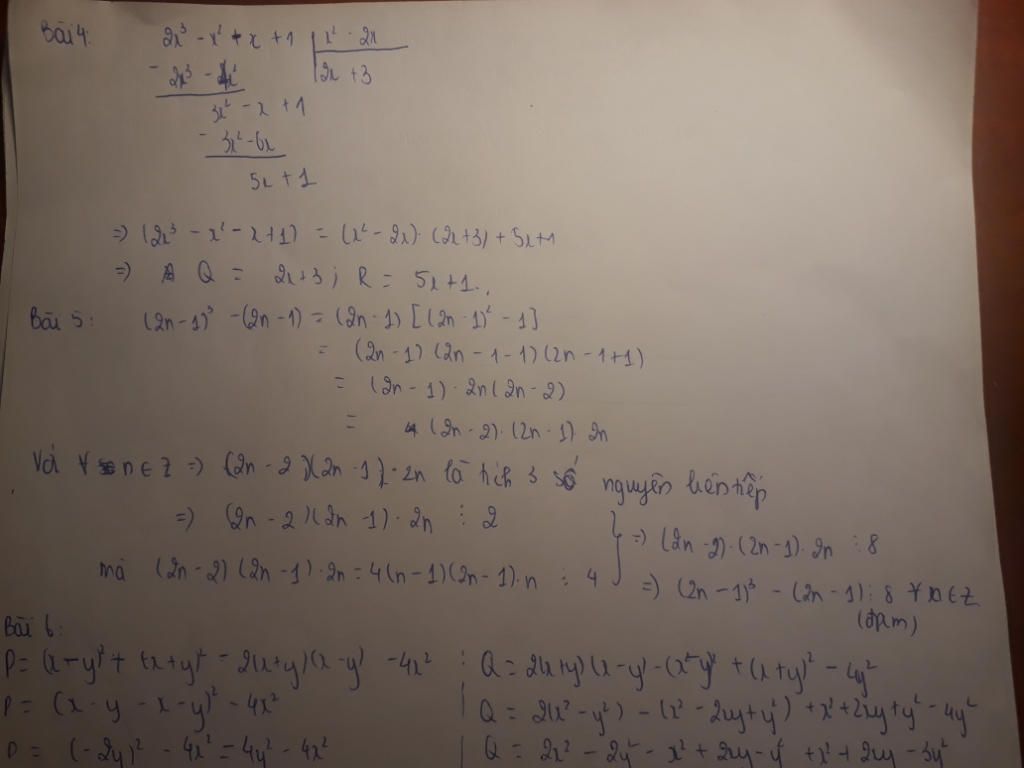 Bài 4: 2x³ - x² + x + 1 | x² - 2x
- 2x³ - 4x² | 2x + 3
3x² - x + 1
- 3x² - 6x
5x + 1
=> (2x³ - x² - x + 1) = (x² - 2x) · (2x + 3) + 5x + 1
=> Q = 2x + 3 ; R = 5x + 1.
Bài 5: (2n - 1)³ - (2n - 1) = (2n - 1) [(2n - 1)² - 1]
= (2n - 1) (2n - 1 - 1) (2n - 1 + 1)
= (2n - 1) · 2n (2n - 2)
= (2n - 2) · (2n - 1) 2n
Với ∀ n ∈ Z => (2n - 2)(2n - 1) · 2n là tích 3 số nguyên liên tiếp
=> (2n - 2)(2n - 1) · 2n ⋮ 2
mà (2n - 2) (2n - 1) · 2n = 4(n - 1)(2n - 1) · n ⋮ 4
=> (2n - 2) · (2n - 1) · 2n ⋮ 8
=> (2n - 1)³ - (2n - 1) ⋮ 8 ∀ n ∈ Z
(đpcm)
Bài 6:
P = (x - y)² + (x + y)² - 2(x + y)(x - y) - 4x²
P = (x - y - x - y)² - 4x²
P = (-2y)² - 4x² = 4y² - 4x²
Q = 2(x + y)(x - y) - (x - y)² + (x + y)² - 4y²
Q = 2(x² - y²) - (x² - 2xy + y²) + x² + 2xy + y² - 4y²
Q = 2x² - 2y² - x² + 2xy - y² + x² + 2xy - 3y²